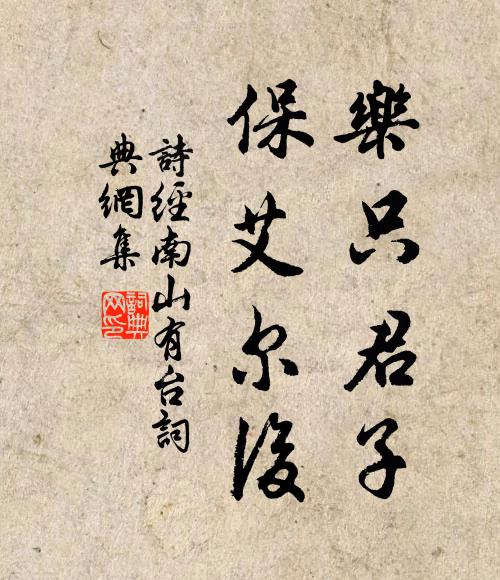 樂只君子
保艾尔後
詩經南山有台詞
典網集
詞典
网印